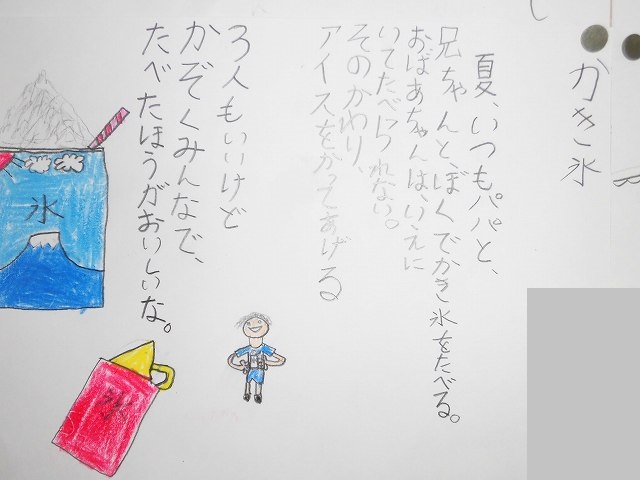 かき氷
夏、いつもパパと、
兄ちゃんと、ぼくでかき氷をたべる。
おばあちゃんは、いえに
いてたべられない。
そのかわり、
アイスをかってあげる
3人もいいけど
かぞくみんなで、
たべたほうがおいしいな。
氷